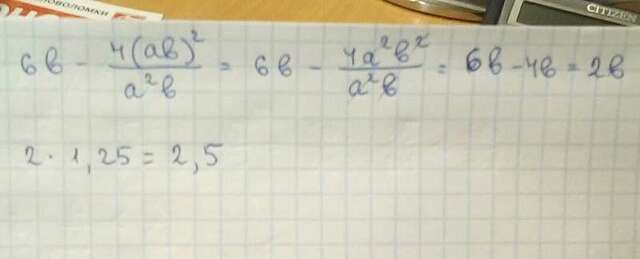 ОВОЛОМКИ
CITIZEN
6в - 4(ав)²/а²в = 6в - 4а²в²/а²в = 6в - 4в = 2в
2 · 1,25 = 2,5